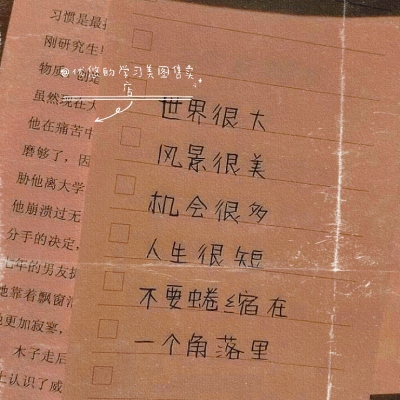 习惯是最
刚研究生
物质
虽然现在大
他在痛苦中
磨够了，因
胁他离大学
他崩溃过无
分手的决定，
七年的男友
她靠着飘窗
更加寂寥，
木子走后
上认识了威
@优悠的学习美图售卖
店
世界很大
风景很美
机会很多
人生很短
不要蜷缩在
一个角落里